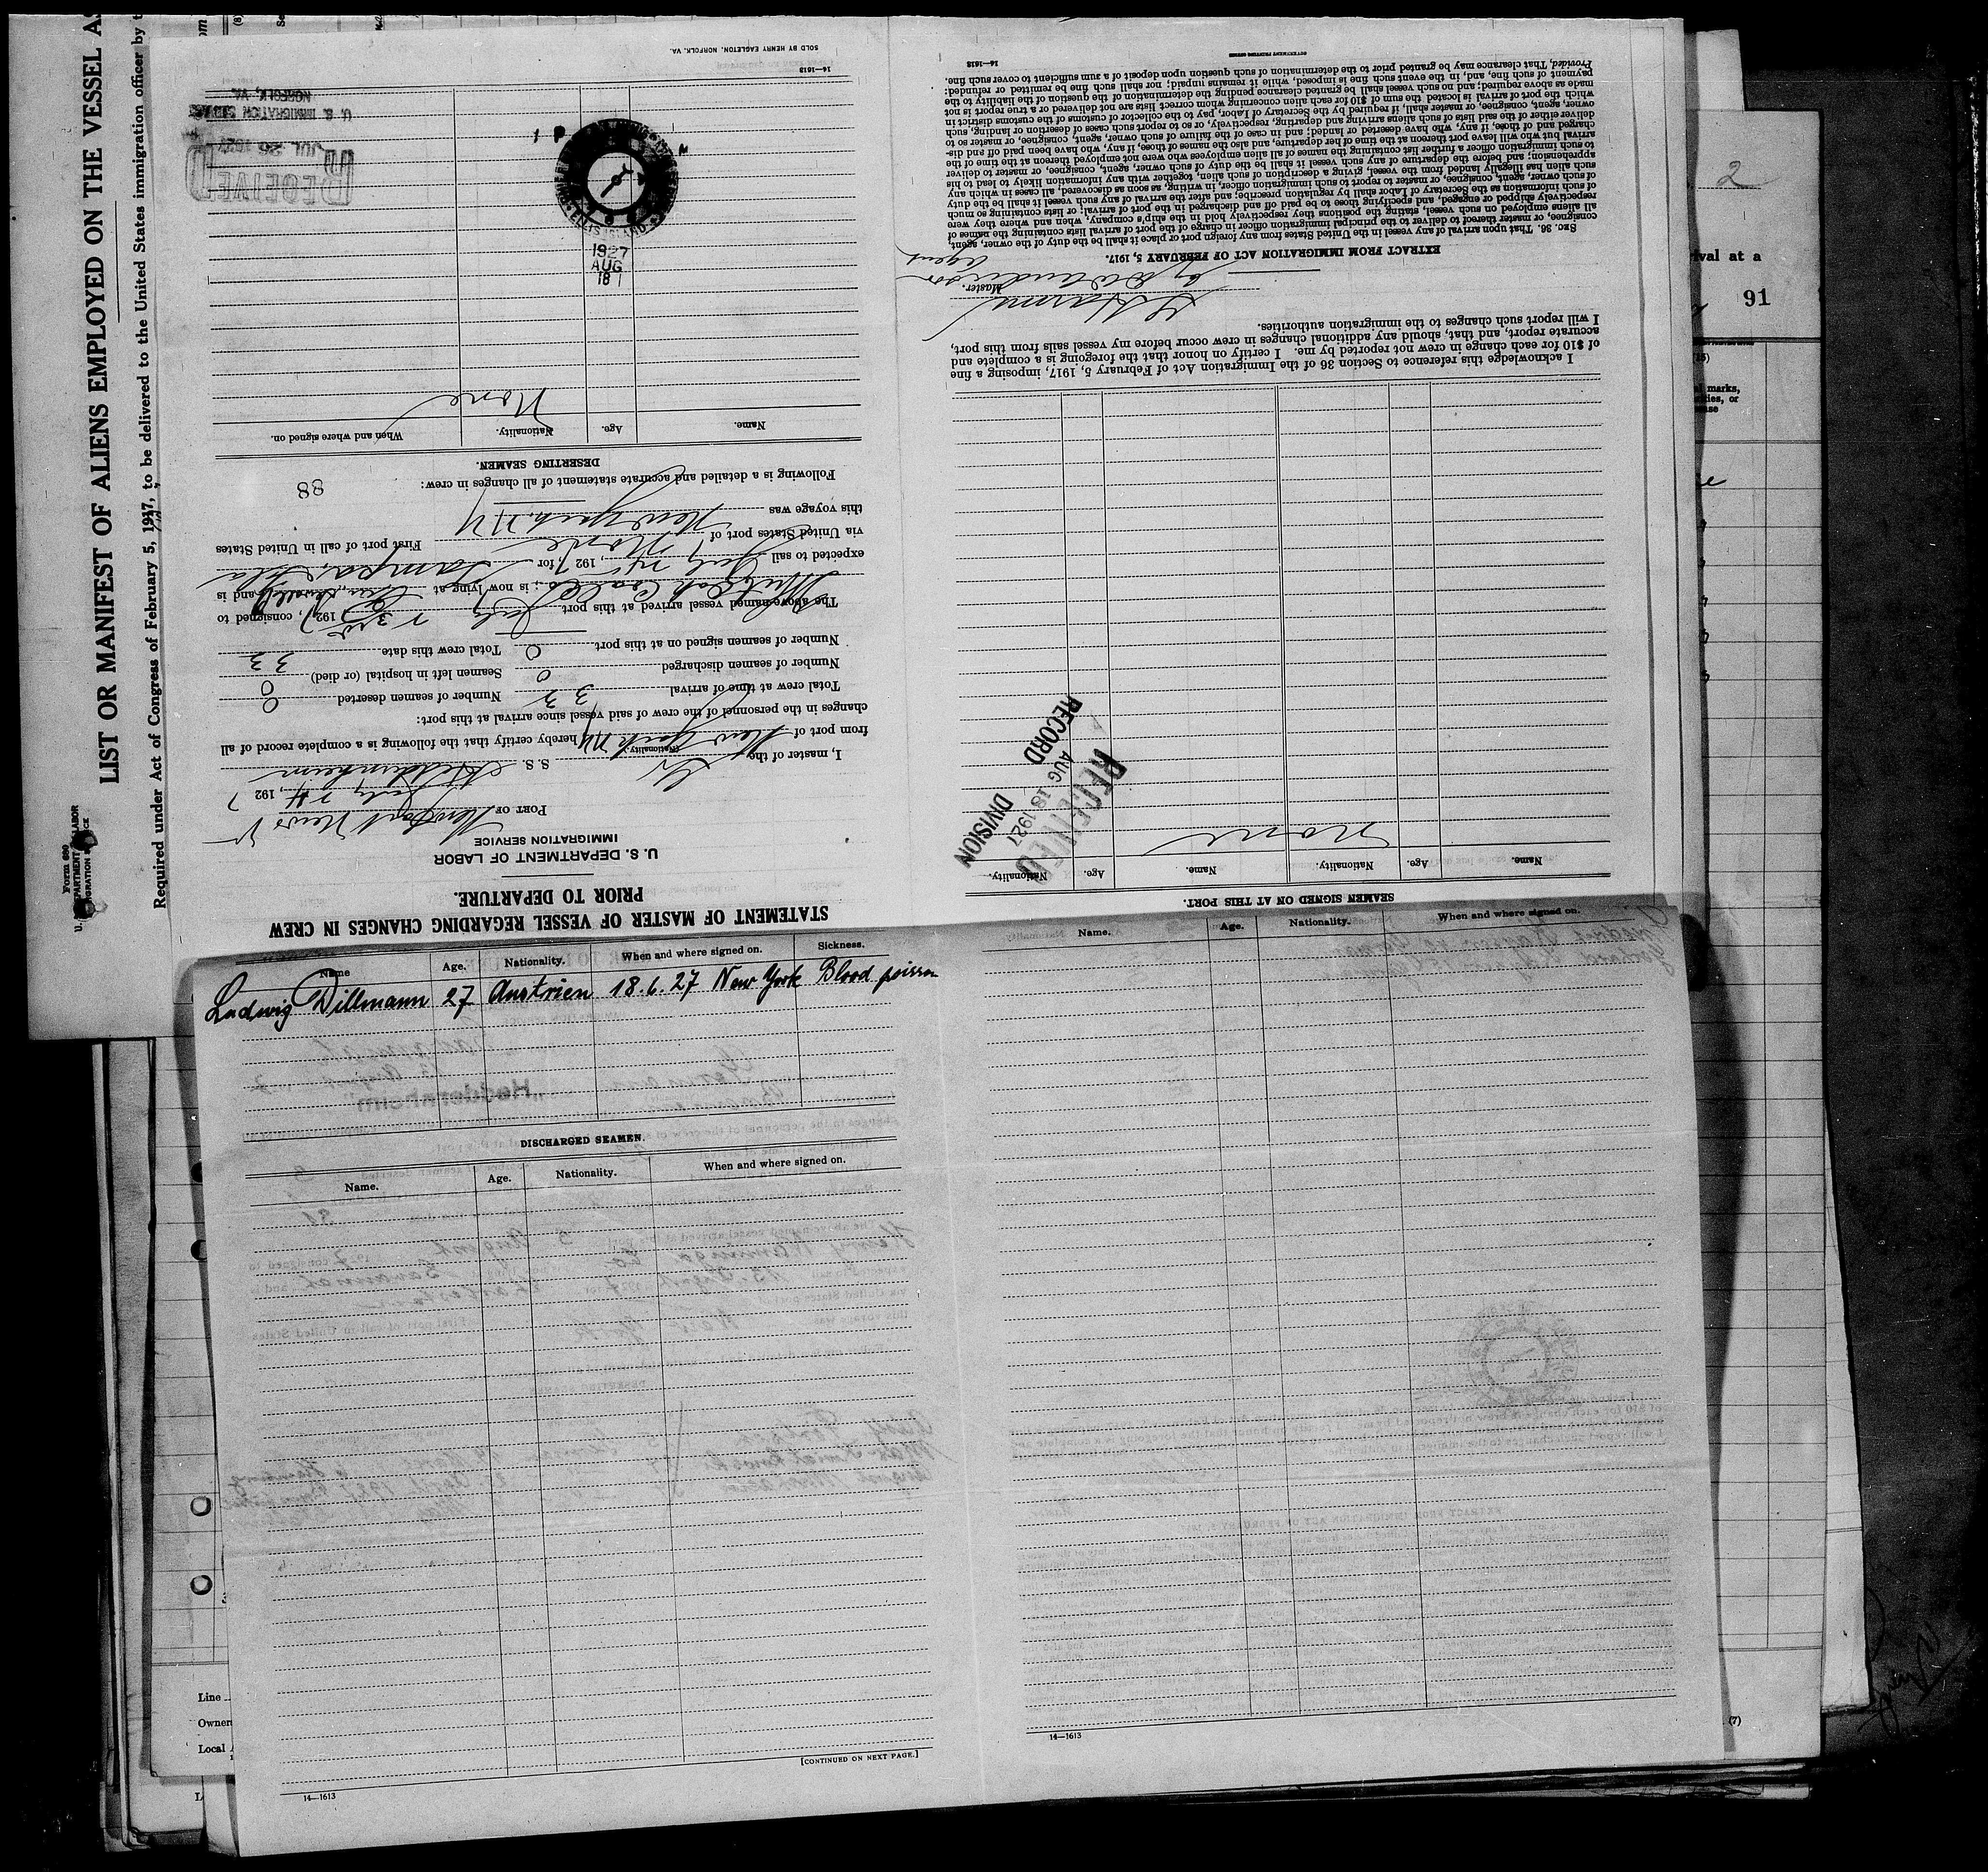 LIST OR MANIFEST OF ALIENS EMPLOYED ON THE VESSEL A
Required under Act of Congress of February 5, 1917, to be delivered to the United States immigration officer by t
Form 680
2
ival at a
91
(15)
al marks,
ities, or
ease
STATEMENT OF MASTER OF VESSEL REGARDING CHANGES IN CREW
PRIOR TO DEPARTURE.
U. S. DEPARTMENT OF LABOR
IMMIGRATION SERVICE
PORT OF Newport News V
July 24, 1927
I, master of the Gr S. S. Heddernheim
(Nationality.)
from port of New York NY hereby certify that the following is a complete record of all
changes in the personnel of the crew of said vessel since arrival at this port:
Total crew at time of arrival 33 Number of seamen deserted 0
Number of seamen discharged 0 Seamen left in hospital (or died) 0
Number of seamen signed on at this port 0 Total crew this date 33
The above-named vessel arrived at this port July 23rd 1927, consigned to
; is now lying at and is
expected to sail July 24, 1927 for Tampa, Fla
via United States port of None First port of call in United States
this voyage was New York, NY
Following is a detailed and accurate statement of all changes in crew:
88
DESERTING SEAMEN.
Name. Age. Nationality. When and where signed on.
None
1927
AUG
18
RECEIVED
JUL 26 1927
U. S. IMMIGRATION SERVICE
NORFOLK, VA.
14—1613
SOLD BY HENRY EAGLETON, NORFOLK, VA.
SEAMEN SIGNED ON AT THIS PORT.
Name. Age. Nationality. Name. Age. Nationality.
None
RECEIVED
AUG 18 1927
RECORD DIVISION
I acknowledge this reference to Section 36 of the Immigration Act of February 5, 1917, imposing a fine
of $10 for each change in crew not reported by me. I certify on honor that the foregoing is a complete and
accurate report, and that, should any additional changes in crew occur before my vessel sails from this port,
I will report such changes to the immigration authorities.
Master.
Agent
EXTRACT FROM IMMIGRATION ACT OF FEBRUARY 5, 1917.
SEC. 36. That upon arrival of any vessel in the United States from any foreign port or place it shall be the duty of the owner, agent,
consignee, or master thereof to deliver to the principal immigration officer in charge of the port of arrival lists containing the names of
all aliens employed on such vessel, stating the positions they respectively hold in the ship's company, when and where they were
respectively shipped or engaged, and specifying those to be paid off and discharged in the port of arrival; or lists containing so much
of such information as the Secretary of Labor shall by regulation prescribe; and after the arrival of any such vessel it shall be the duty
of such owner, agent, consignee, or master to report to such immigration officer, in writing, as soon as discovered, all cases in which any
such alien has illegally landed from the vessel, giving a description of such alien, together with any information likely to lead to his
apprehension; and before the departure of any such vessel it shall be the duty of such owner, agent, consignee, or master to deliver
to such immigration officer a further list containing the names of all alien employees who were not employed thereon at the time of the
arrival but who will leave port thereon at the time of her departure, and also the names of those, if any, who have been paid off and dis-
charged and of those, if any, who have deserted or landed; and in case of the failure of such owner, agent, consignee, or master so to
deliver either of the said lists of such aliens arriving and departing, respectively, or so to report such cases of desertion or landing, such
owner, agent, consignee, or master shall, if required by the Secretary of Labor, pay to the collector of customs of the customs district in
which the port of arrival is located the sum of $10 for each alien concerning whom correct lists are not delivered or a true report is not
made as above required; and no such vessel shall be granted clearance pending the determination of the question of the liability to the
payment of such fine, and, in the event such fine is imposed, while it remains unpaid; nor shall such fine be remitted or refunded:
Provided, That clearance may be granted prior to the determination of such question upon deposit of a sum sufficient to cover such fine.
14—1613
GOVERNMENT PRINTING OFFICE
Name Age. Nationality. When and where signed on. Sickness.
Ludwig Dillmann 27 Austrien 18.6.27 New York Blood poison
DISCHARGED SEAMEN.
Name. Age. Nationality. When and where signed on.
[CONTINUED ON NEXT PAGE.]
14—1613
Name. Age. Nationality. When and where signed on.
14—1613
Line
Owner
Local
(7)